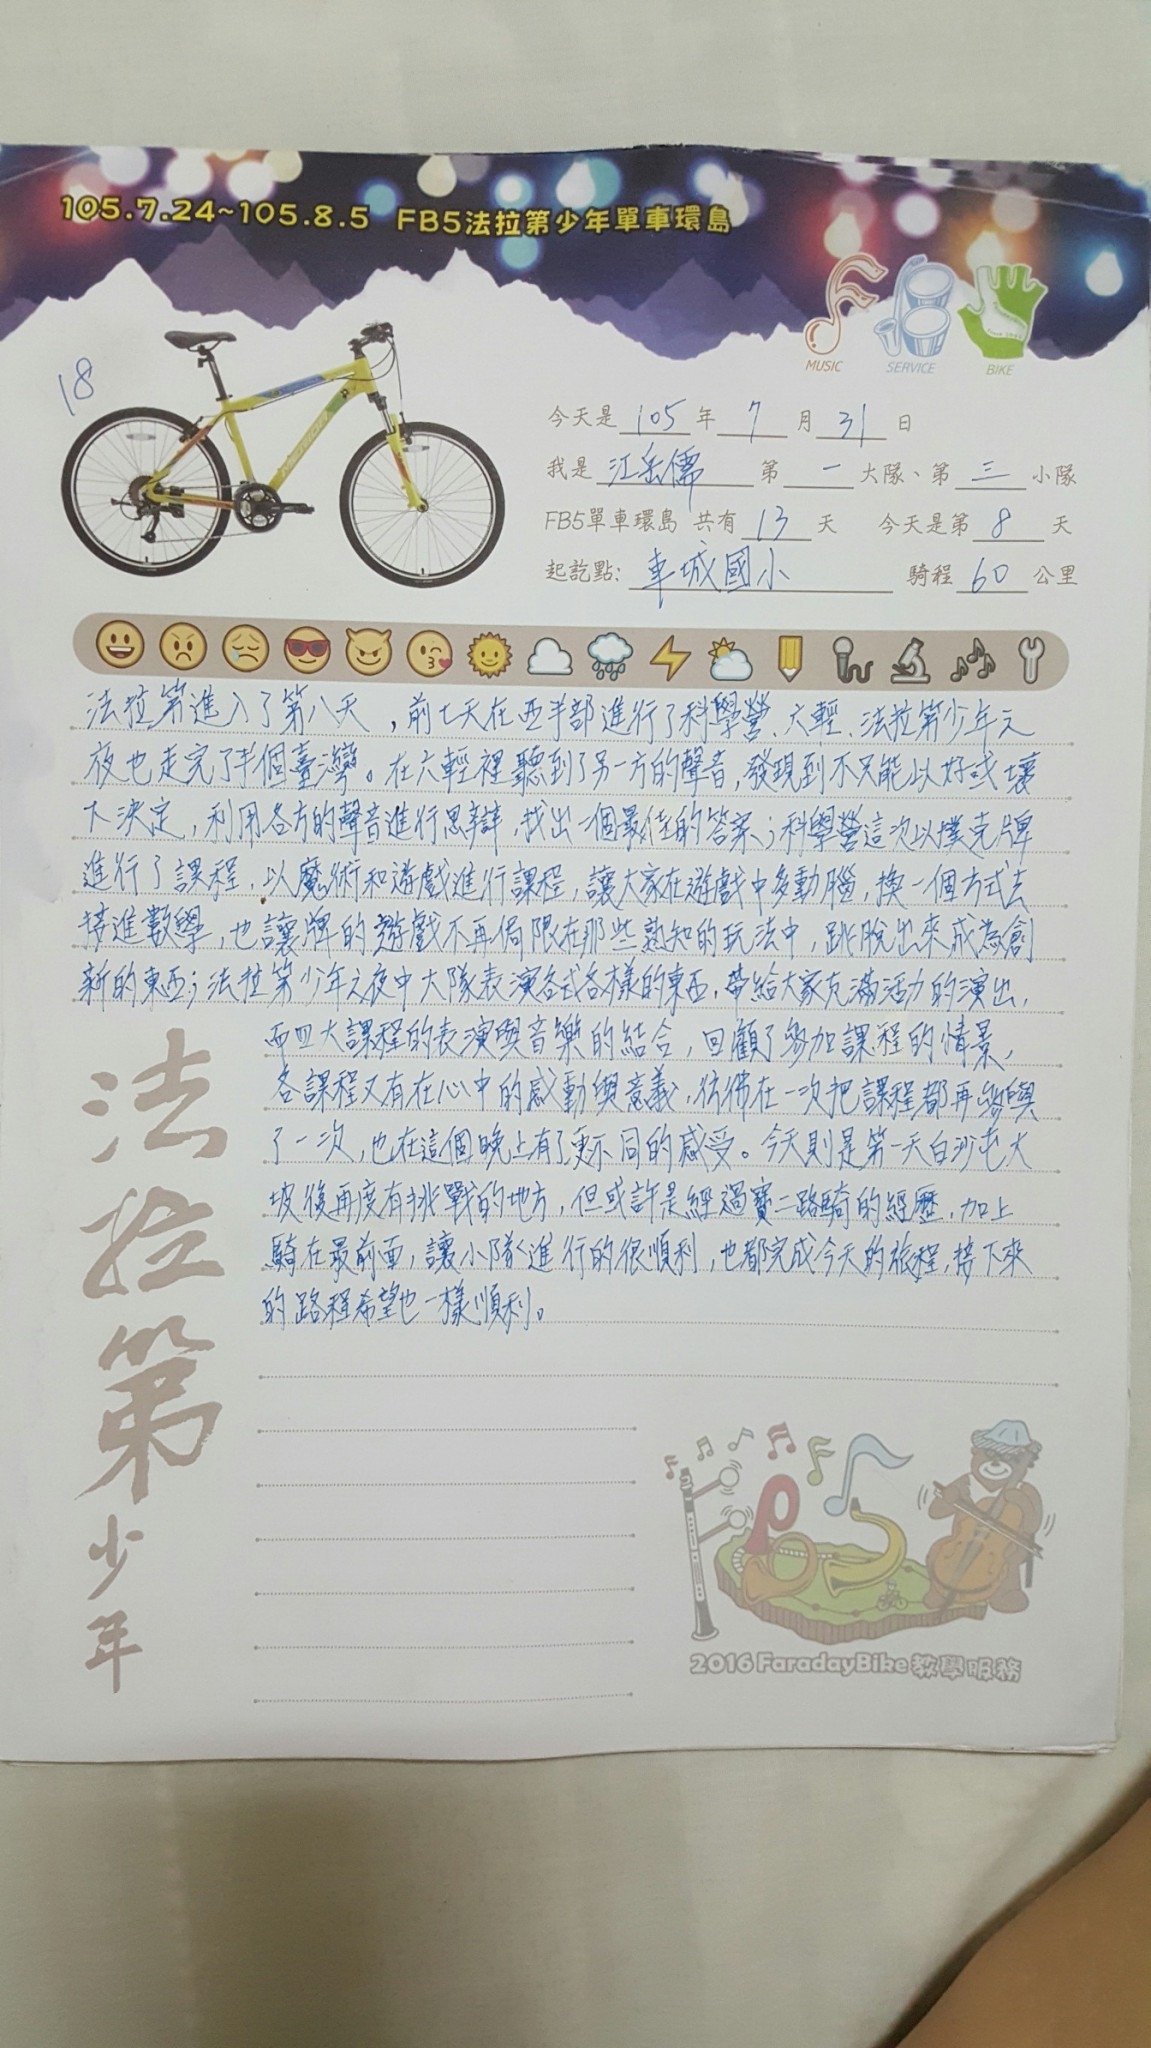 105.7.24~105.8.5 FB5法拉第少年單車環島
MUSIC SERVICE BIKE
18
今天是 105 年 7 月 31 日
我是 江岳儒 第 一 大隊、第 三 小隊
FB5單車環島 共有 13 天 今天是第 8 天
起訖點: 車城國小 騎程 60 公里
法拉第進入了第八天,前七天在西半部進行了科學營、六輕、法拉第少年之
夜也走完了半個臺灣。在六輕裡聽到了另一方的聲音,發現到不只能以好或壞
下決定,利用各方的聲音進行思辯,找出一個最佳的答案;科學營這次以撲克牌
進行了課程,以魔術和遊戲進行課程,讓大家在遊戲中多動腦,換一個方式去
接進數學,也讓牌的遊戲不再侷限在那些熟知的玩法中,跳脫出來成為創
新的東西;法拉第少年之夜中大隊表演各式各樣的東西,帶給大家充滿活力的演出,
而四大課程的表演與音樂的結合,回顧了參加課程的情景,
各課程又有在心中的感動與意義,彷彿在一次把課程都再參與
了一次,也在這個晚上有了更不同的感受。今天則是第一天白沙屯大
坡後再度有挑戰的地方,但或許是經過寶二路騎的經歷,加上
騎在最前面,讓小隊進行的很順利,也都完成今天的旅程,接下來
的路程希望也一樣順利。
法拉第少年
2016 FaradayBike教學服務